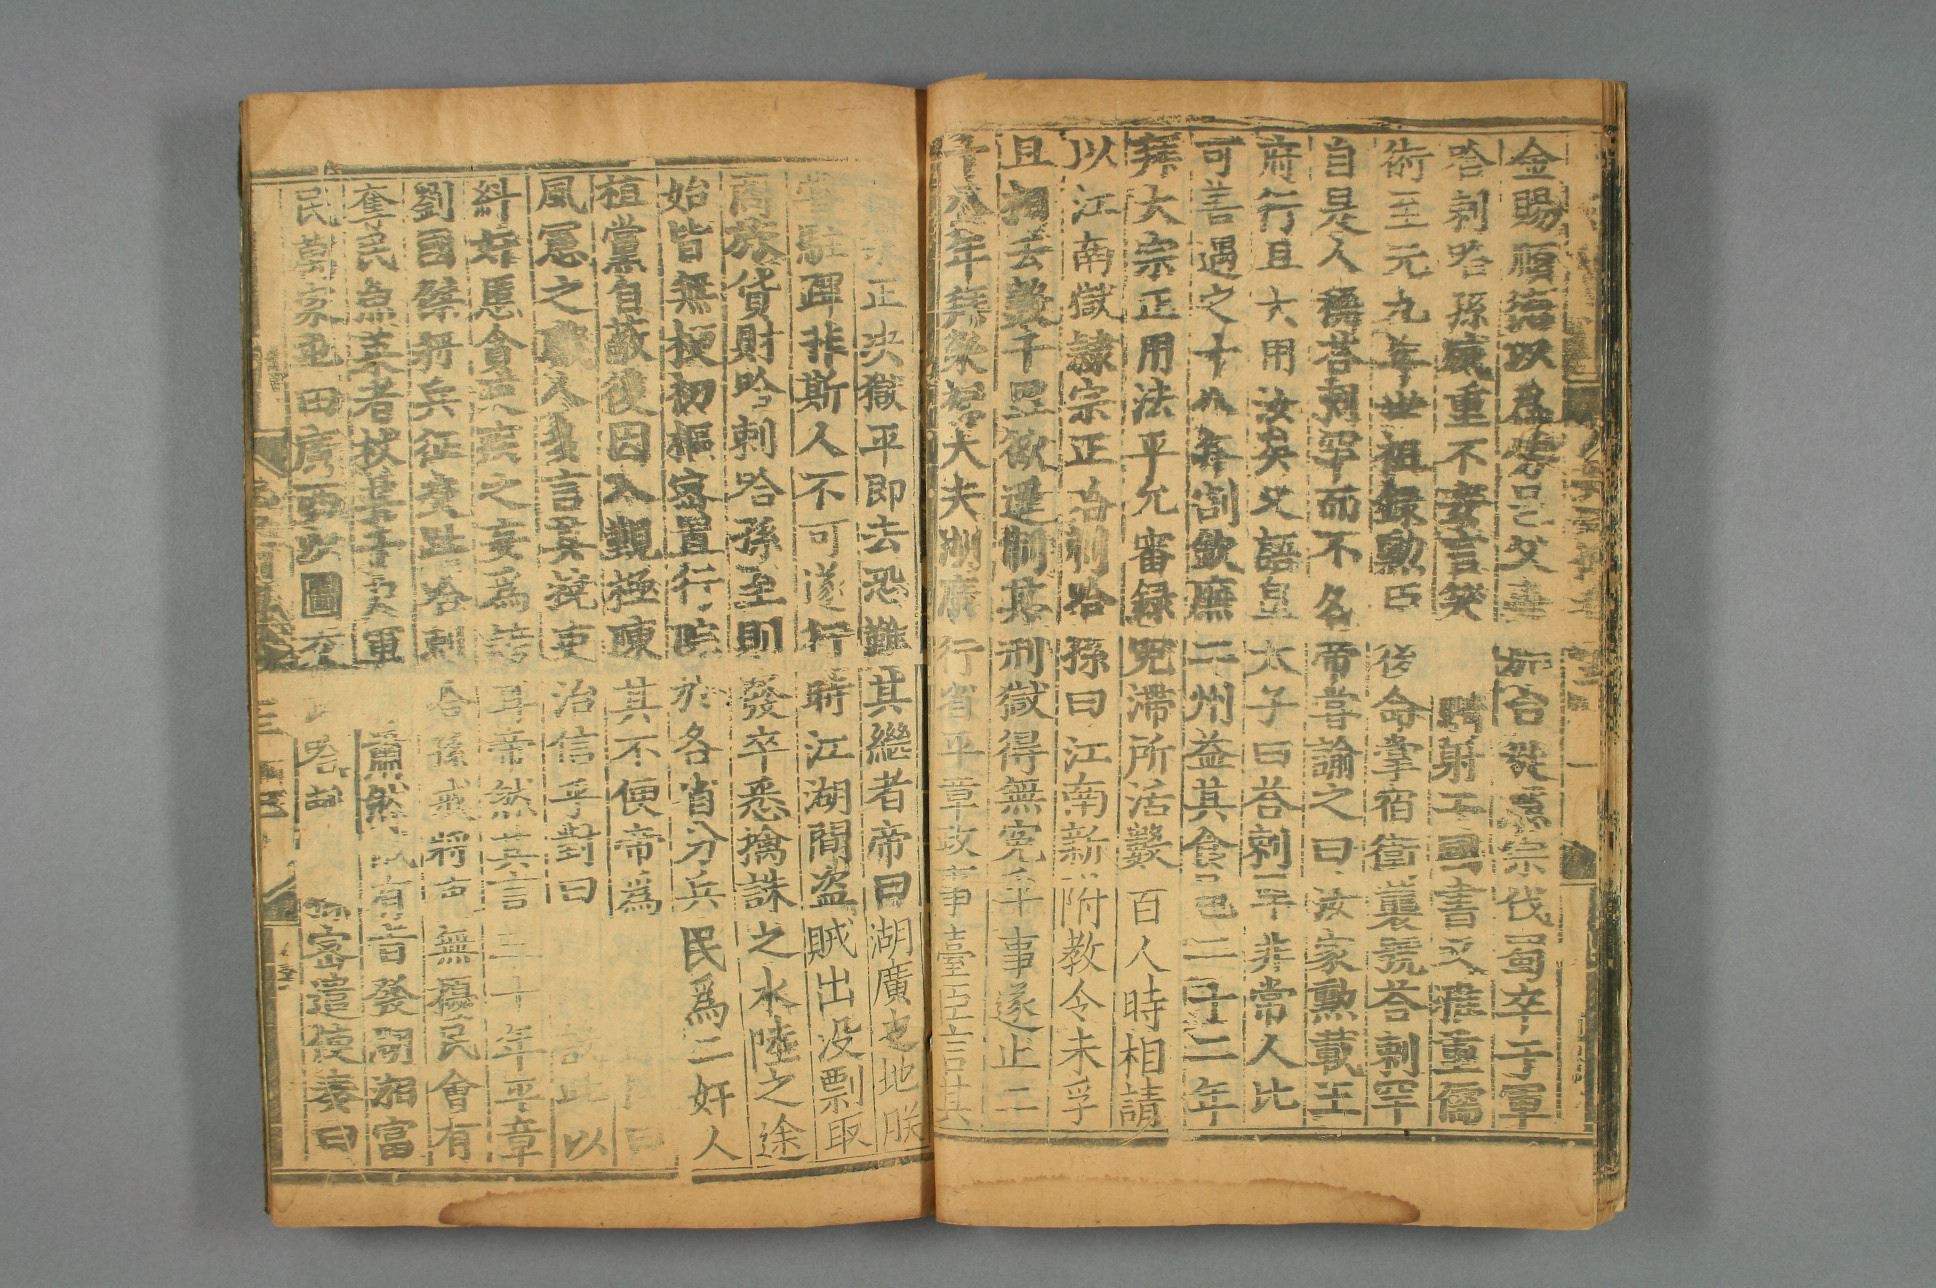 金賜順德以爲邑父囊加台從憲宗伐蜀卒于軍
哈剌哈孫威重不妄言笑騎射工國書又雅重儒
術至元九年世祖錄勳臣後命掌宿衛襲號荅剌罕
自是人稱荅剌罕而不名帝嘗諭之曰汝家勳載王
府行且大用汝矣又語皇太子曰荅剌罕非常人比
可善遇之十八年割欽廉二州益其食邑二十二年
拜大宗正用法平允審録冤滯所活數百人時相請
以江南獄隸宗正哈剌哈孫曰江南新附教令未孚
且相去數千里欲遥制其刑獄得無冤乎事遂止二
十八年拜榮祿大夫湖廣行省平章政事臺臣言其
在宗正决獄平即去恐難其繼者帝曰湖廣之地朕
嘗駐蹕非斯人不可遂行時江湖間盗賊出没剽取
商旅貨財哈剌哈孫至則發卒悉擒誅之水陸之途
始皆無梗初樞密置行院於各省分兵民爲二奸人
植黨自蔽後因入覲極陳其不便帝爲曰
風憲之職人多言其撓吏治信乎對曰設此以
糾奸慝貪吏疾之妄爲謗耳帝然其言三十年平章
劉國傑將兵征交趾哈剌哈孫戒將吏無擾民會有
奪民魚菜者杖其千户軍肅然俄有旨發湖湘富
民萬家屯田廣西以圖交哈剌孫密遣使奏曰